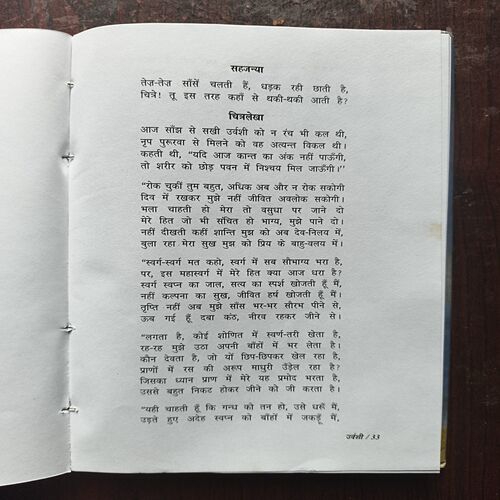 सहजन्या
तेज़-तेज़ साँसें चलती हैं, धड़क रही छाती है,
चित्रे! तू इस तरह कहाँ से थकी-थकी आती है?
चित्रलेखा
आज साँझ से सखी उर्वशी को न रंच भी कल थी,
नृप पुरूरवा से मिलने को वह अत्यन्त विकल थी।
कहती थी, “यदि आज कान्त का अंक नहीं पाऊँगी,
तो शरीर को छोड़ पवन में निश्चय मिल जाऊँगी।''
“रोक चुकीं तुम बहुत, अधिक अब और न रोक सकोगी
दिव में रखकर मुझे नहीं जीवित अवलोक सकोगी।
भला चाहती हो मेरा तो वसुधा पर जाने दो
मेरे हित जो भी संचित हो भाग्य, मुझे पाने दो।
नहीं दीखती कहीं शान्ति मुझ को अब देव-निलय में,
बुला रहा मेरा सुख मुझ को प्रिय के बाहु-वलय में।
“स्वर्ग-स्वर्ग मत कहो, स्वर्ग में सब सौभाग्य भरा है,
पर, इस महास्वर्ग में मेरे हित क्या आज धरा है?
स्वर्ग स्वप्न का जाल, सत्य का स्पर्श खोजती हूँ मैं,
नहीं कल्पना का सुख, जीवित हर्ष खोजती हूँ मैं।
तृप्ति नहीं अब मुझे साँस भर-भर सौरभ पीने से,
ऊब गई हूँ दबा कंठ, नीरव रहकर जीने से।
“लगता है, कोई शोणित में स्वर्ण-तरी खेता है,
रह-रह मुझे उठा अपनी बाँहों में भर लेता है।
कौन देवता है, जो यों छिप-छिपकर खेल रहा है,
प्राणों में रस की अरूप माधुरी उँड़ेल रहा है?
जिसका ध्यान प्राण में मेरे यह प्रमोद भरता है,
उससे बहुत निकट होकर जीने को जी करता है।
“यही चाहती हूँ कि गन्ध को तन हो, उसे धरूँ मैं,
उड़ते हुए अदेह स्वप्न को बाँहों में जकड़ूँ मैं,
उर्वशी / 33